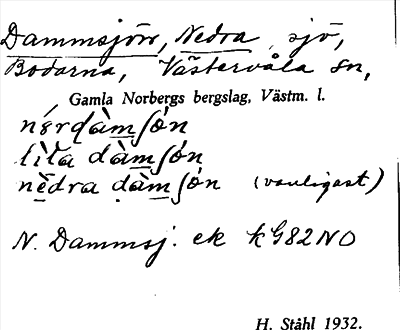 Dammsjön, Nedra, sjö,
Bodarna, Västervåla sn,
Gamla Norbergs bergslag, Västm. l.
nórdàmʃón
lìta dàmʃón
nèdra dàmʃón (vanligast)
N. Dammsj. ek kG82NO
H. Ståhl 1932.